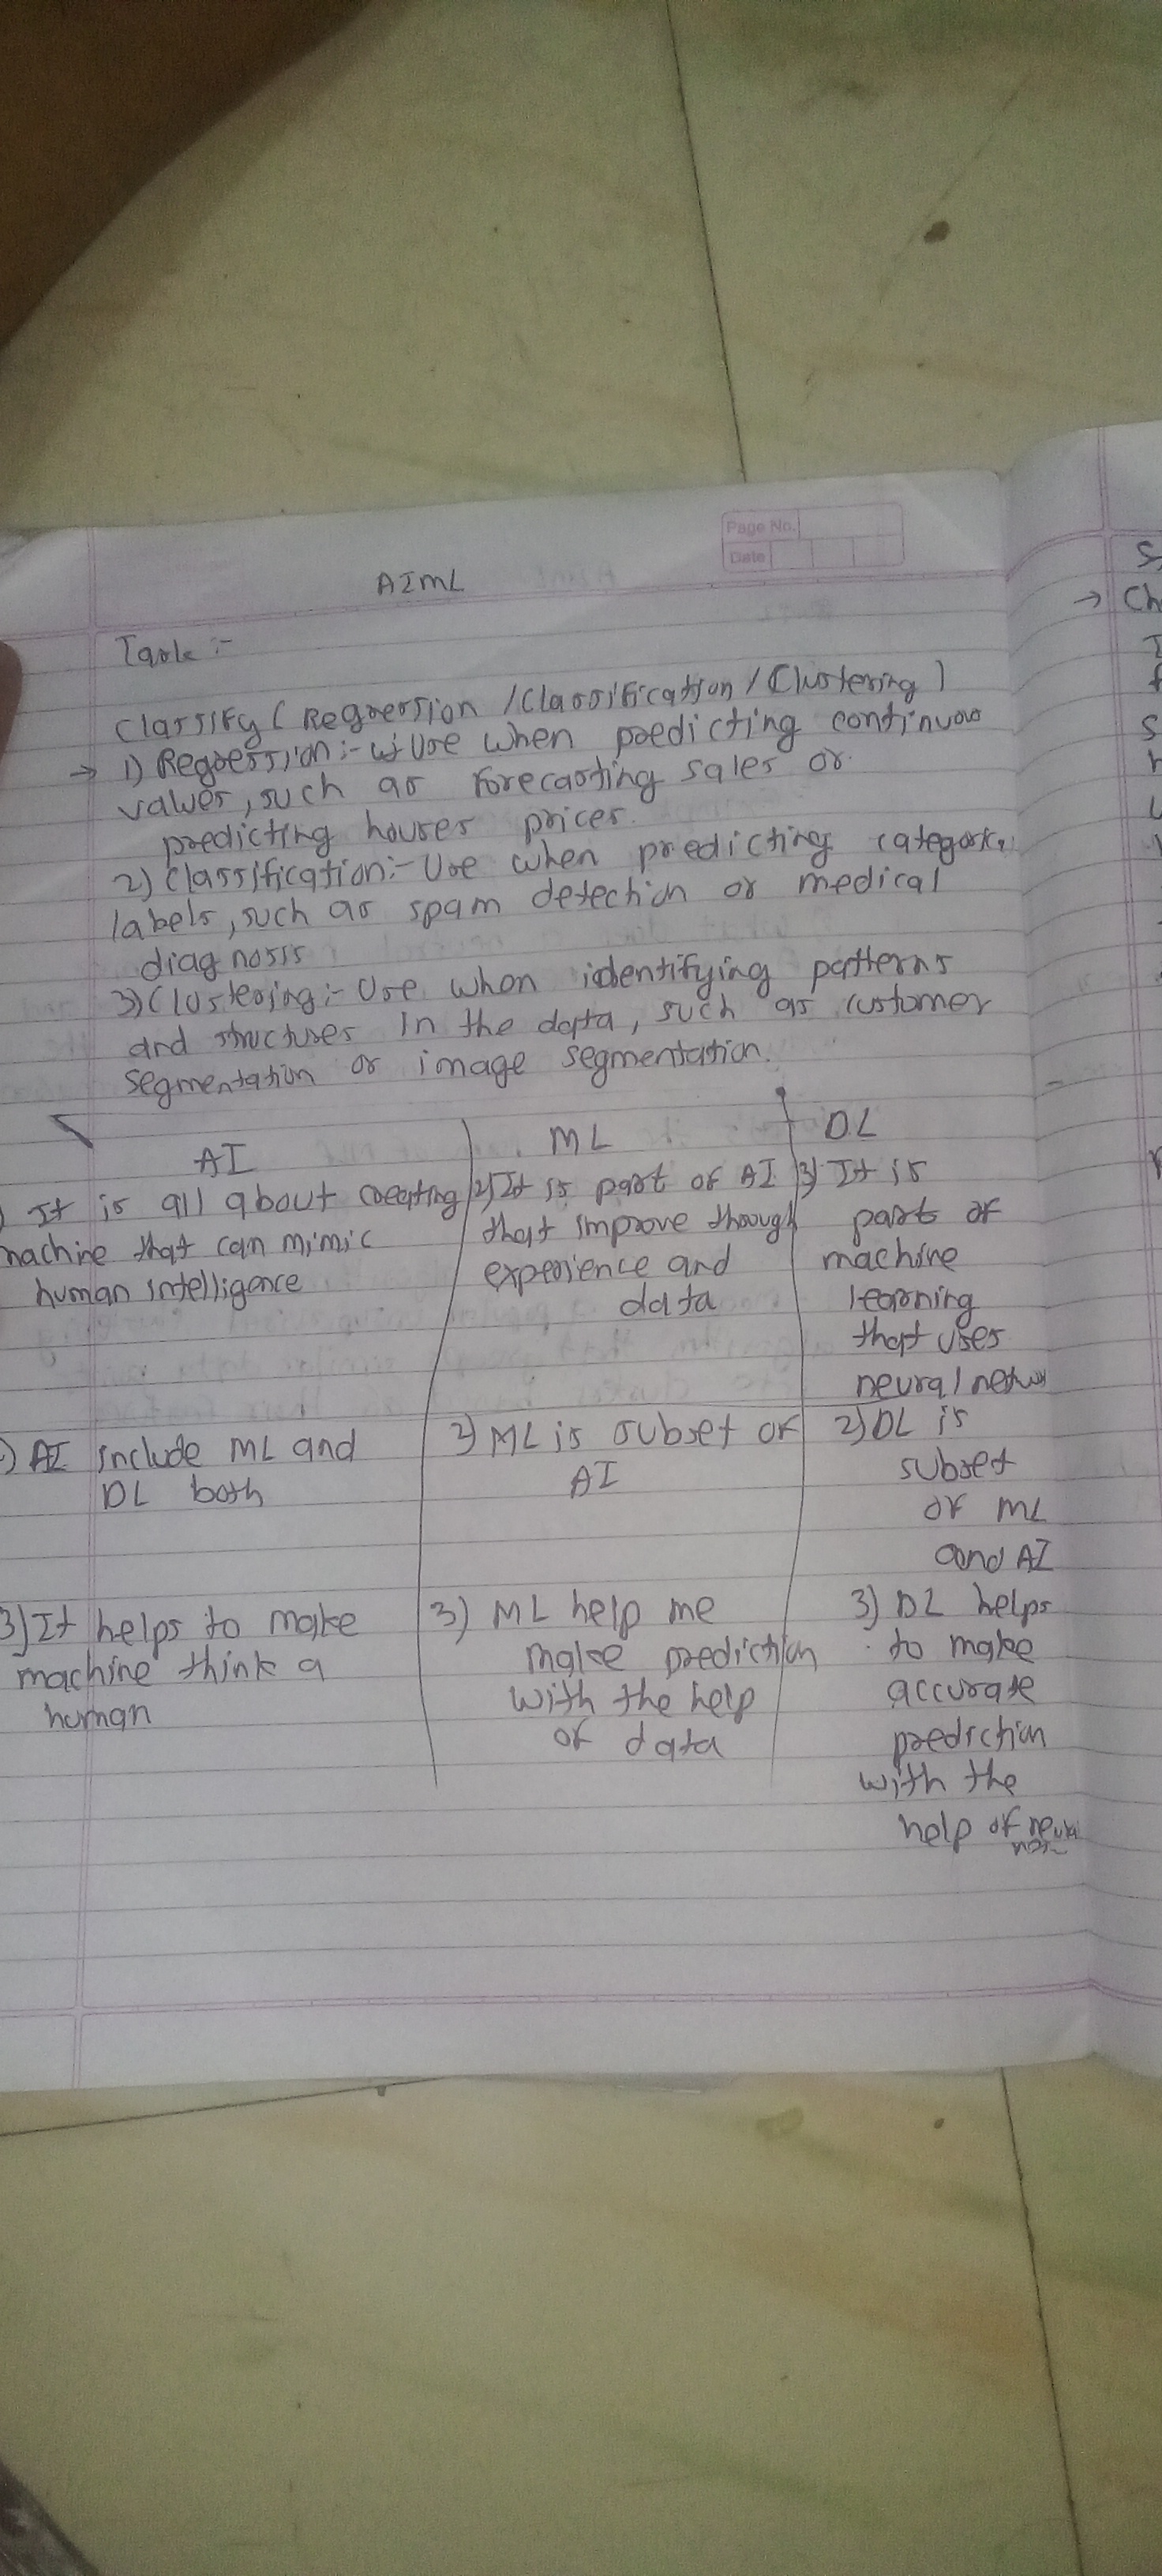 Page No.
Date
AIML
Task :-
Classify ( Regression / Classification / Clustering )
→ 1) Regression :- Use when predicting continuous
values, such as forecasting sales or
predicting houses prices.
2) Classification :- Use when predicting
labels, such as spam detection or medical
diagnosis
3) Clustering :- Use when identifying patterns
and structures in the data, such as customer
segmentation or image segmentation.
AI
ML
DL
It is all about creating
machine that can mimic
human intelligence
It is part of AI
that improve though
experience and
data
It is
part of
machine
learning
that uses
neural
AI include ML and
DL both
2) ML is subset of
AI
2) DL is
subset
of ML
and AI
3) It helps to make
machine think a
human
3) ML help me
make prediction
with the help
of data
3) DL helps
to make
accurate
prediction
with the
help of
→ Ch